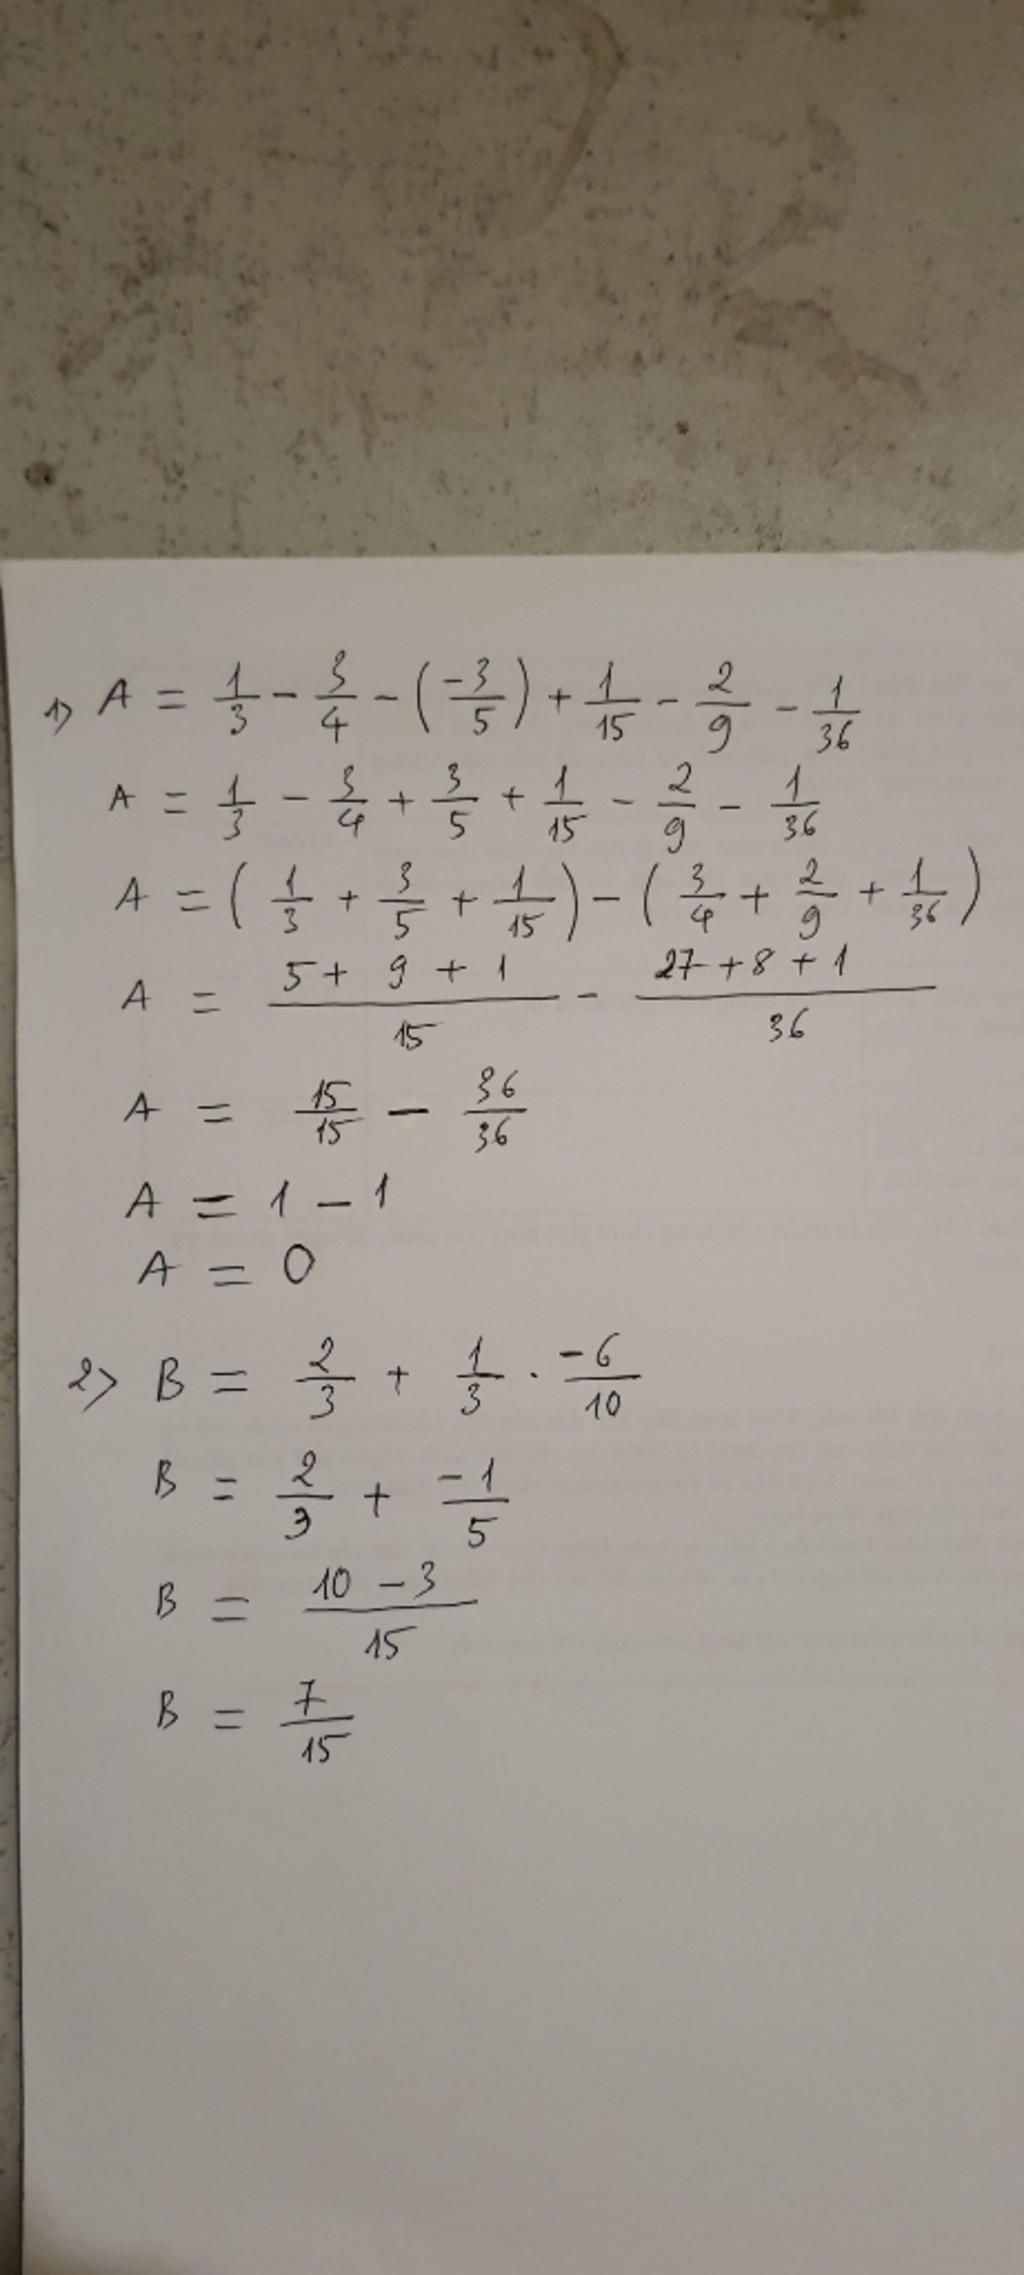 1) A = 1/3 - 3/4 - (-3/5) + 1/15 - 2/9 - 1/36
A = 1/3 - 3/4 + 3/5 + 1/15 - 2/9 - 1/36
A = (1/3 + 3/5 + 1/15) - (3/4 + 2/9 + 1/36)
A = (5 + 9 + 1)/15 - (27 + 8 + 1)/36
A = 15/15 - 36/36
A = 1 - 1
A = 0
2) B = 2/3 + 1/3 . -6/10
B = 2/3 + -1/5
B = (10 - 3)/15
B = 7/15